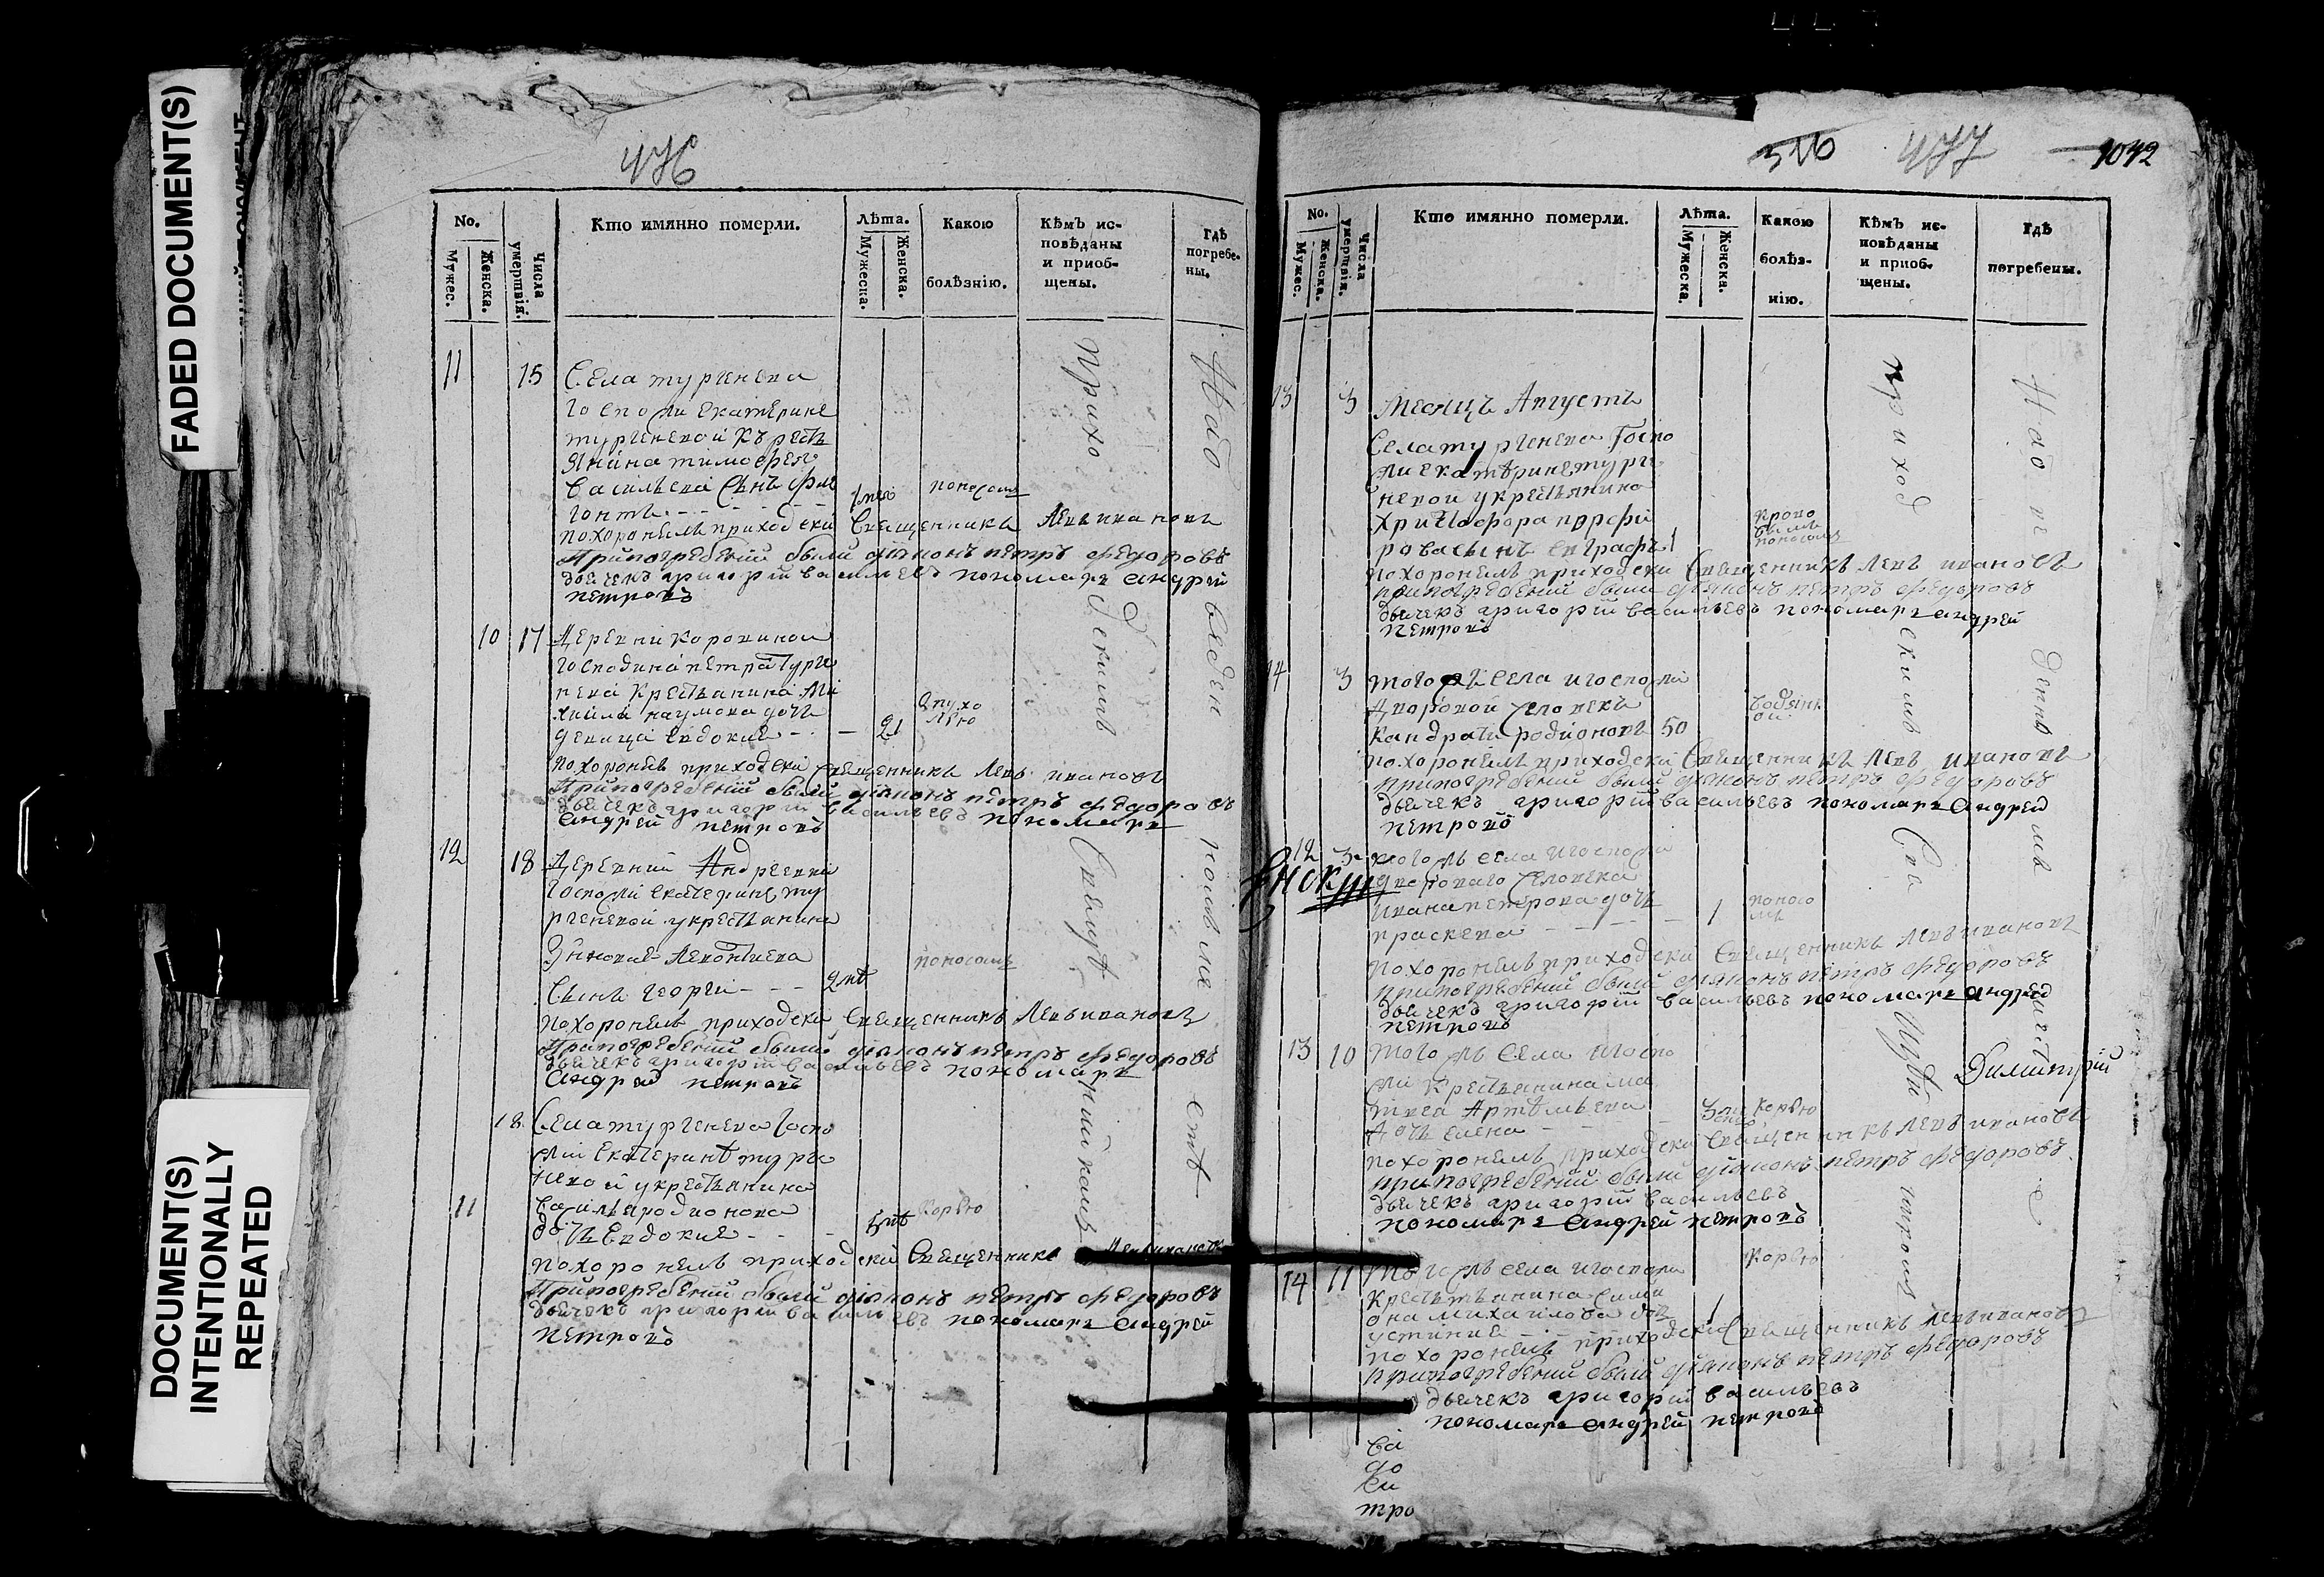 FADED DOCUMENT(S)
DOCUMENT(S)
INTENTIONALLY
REPEATED
476
No.
Мужес.
Женска.
Числа
умертвія.
Кто имянно померли.
Лѣта.
Мужеска.
Женска.
Какою
болѣзнію.
Кѣмъ ис-
повѣданы
и приоб-
щены.
Гдѣ
погребе-
ны.
11 15 Села тургенева
госпожи екатерине
тургеневой
янина тимофея
васильева сынъ
поносомъ
похоронелъ приходски священникъ Левъ ивановъ
припогребении былъ диаконъ петръ федоровъ
дьечекъ григорий васильевъ пономарь андрей
петровъ
10 17 деревни коровиной
господина петра турге
нева крестьянина ми
хаила наумова дочь
девица евдокие 21
похоронелъ приходски священникъ Левъ ивановъ
припогребении былъ диаконъ петръ федоровъ
дьечекъ григорий васильевъ пономарь
андрей петровъ
12 18 деревни Андреевки
госпожи екатерине ту
ргеневой укрестьянина
зиновие Леонтиева
сынъ георги поносомъ
похоронелъ приходски священникъ Левъ ивановъ
припогребении былъ диаконъ петръ федоровъ
дьечекъ григорий васильевъ пономарь
андрей петровъ
18 Села тургенева госпо
жи Екатеринѣ турге
невой укрестьянина
11 василья родионова
дочь Евдокие корью
похоронелъ приходски священникъ Левъ ивановъ
припогребении былъ диаконъ петръ федоровъ
дьечекъ григорий васильевъ пономарь андрей
петровъ
приходскимъ священникомъ
516 477 1042
No.
Мужес.
Женска.
Числа
умертвія.
Кто имянно померли.
Лѣта.
Мужеска.
Женска.
Какою
болѣз-
нію.
Кѣмъ ис-
повѣданы
и приоб-
щены.
Гдѣ
погребены.
13 3 месяцъ Августъ
Села тургенева госпо
жи екатѣрине турге
невой укрестьянина
рова сынъ евграфъ 1
похоронелъ приходски священникъ Левъ ивановъ
припогребении былъ диаконъ петръ федоровъ
дьечекъ григорий васильевъ пономарь андрей
петровъ
14 3 того жъ села игоспожи
дворовой человекъ
кандрати родионовъ 50
похоронелъ приходски священникъ Левъ ивановъ
припогребении былъ диаконъ петръ федоровъ
дьечекъ григорий васильевъ пономарь андрей
петровъ
12 3 того жъ села игоспожи
дворового человека
ивана петрова дочь
праскева 1 поносо
мъ
похоронелъ приходски священникъ Левъ ивановъ
припогребении былъ диаконъ петръ федоровъ
дьечекъ григорий васильевъ пономарь андрей
петровъ
13 10 того жъ села игоспо
жи крестьянина ма
твеа Артѣмьева
дочь елена корью
похоронелъ приходски священникъ Левъ ивановъ
припогребении былъ диаконъ петръ федоровъ
дьечекъ григорий васильевъ
пономарь андрей петровъ
14 11 того жъ села игоспожи корью
крестьянина сими
она михаилова дочь
устиние 1
похоронелъ приходски священникъ Левъ ивановъ
припогребении былъ диаконъ петръ федоровъ
дьечекъ григорий васильевъ
пономарь андрей петровъ
приходскимъ
Димитрий